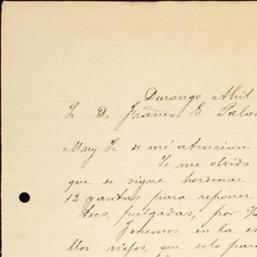 Durango Abril
Sr. D. Franco E. Pala
Muy Sr de mi atencion.
Se me olvido
que se signe hordonar
12 yantas para reponer
tres, pulgadas, por
Tenemos en la
llos viejos, que solo para